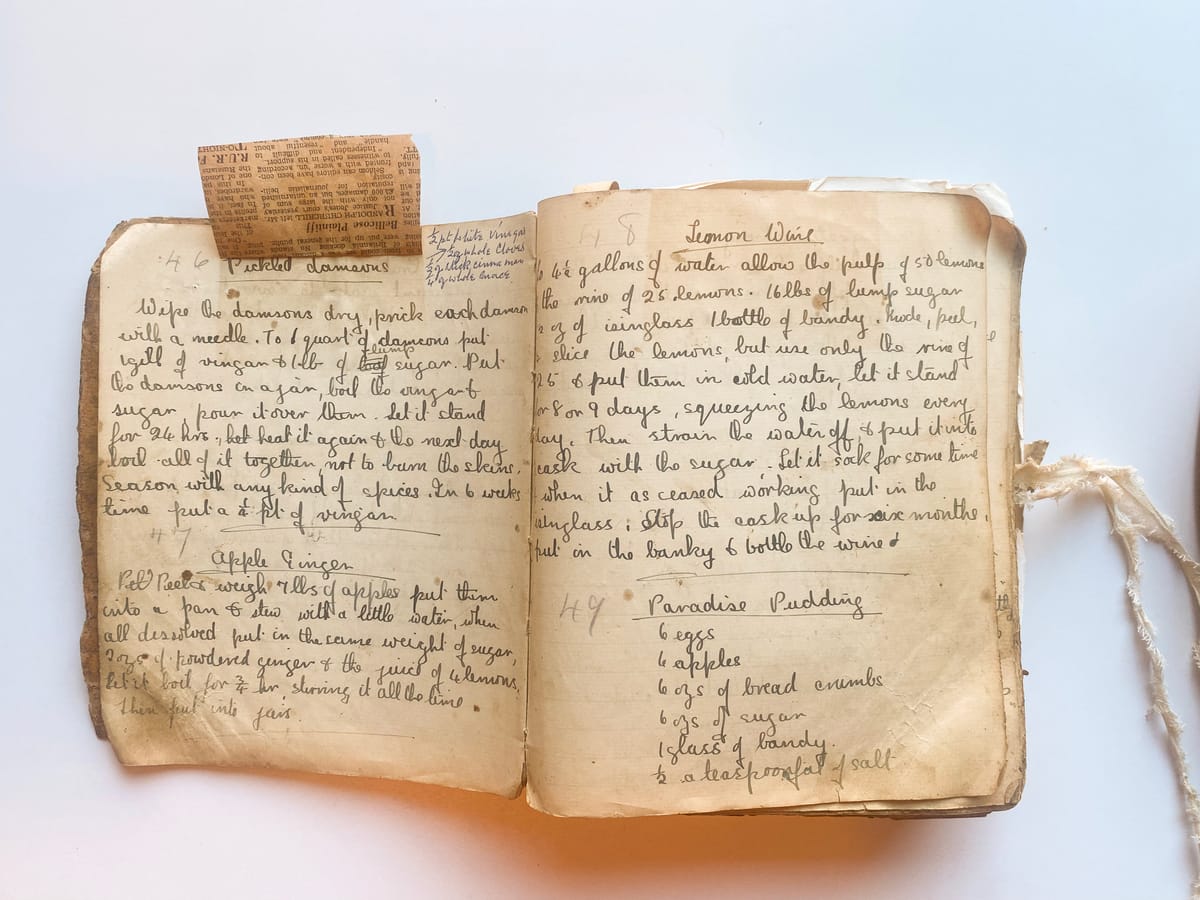 46 Pickled damsons
½ pt white Vinegar
½ g whole Cloves
½ g stick cinnamon
¼ g whole mace
Wipe the damsons dry, prick each damson
with a needle. To 1 quart of damsons put
1 gill of vingar & 1 lb of lump sugar. Put
the damsons in a jar, boil the vingar &
sugar, pour it over them. Let it stand
for 24 hrs, heat it again & the next day
boil all of it together, not to burn the skins.
Season with any kind of spices. In 6 weeks
time put a ¼ pt of vingar.
47
Apple Ginger
Peel & weigh 7 lbs of apples put them
into a pan & stew with a little water, when
all dissolved put in the same weight of sugar,
ozs of powdered ginger & the juice of 4 lemons.
Let it boil for ¾ hr, stirring it all the time
then put into jars.
Bellicose Plaintiff
RANDOLPH CHURCHILL
48 Lemon Wine
4½ gallons of water allow the pulp of 50 lemons
the rine of 25 lemons. 16 lbs of lump sugar
oz of isinglass 1 bottle of bandy. peel,
slice the lemons, but use only the rine of
25 & put them in cold water, let it stand
for 8 or 9 days, squeezing the lemons every
day. Then strain the water off & put it into
cask with the sugar. Let it for some time
when it as ceased working put in the
isinglass. Stop the cask up for six months.
put in the banky & bottle the wine
49 Paradise Pudding
6 eggs
apples
6 ozs of bread crumbs
6 ozs of sugar
1 glass of bandy.
½ a teaspoonful of salt